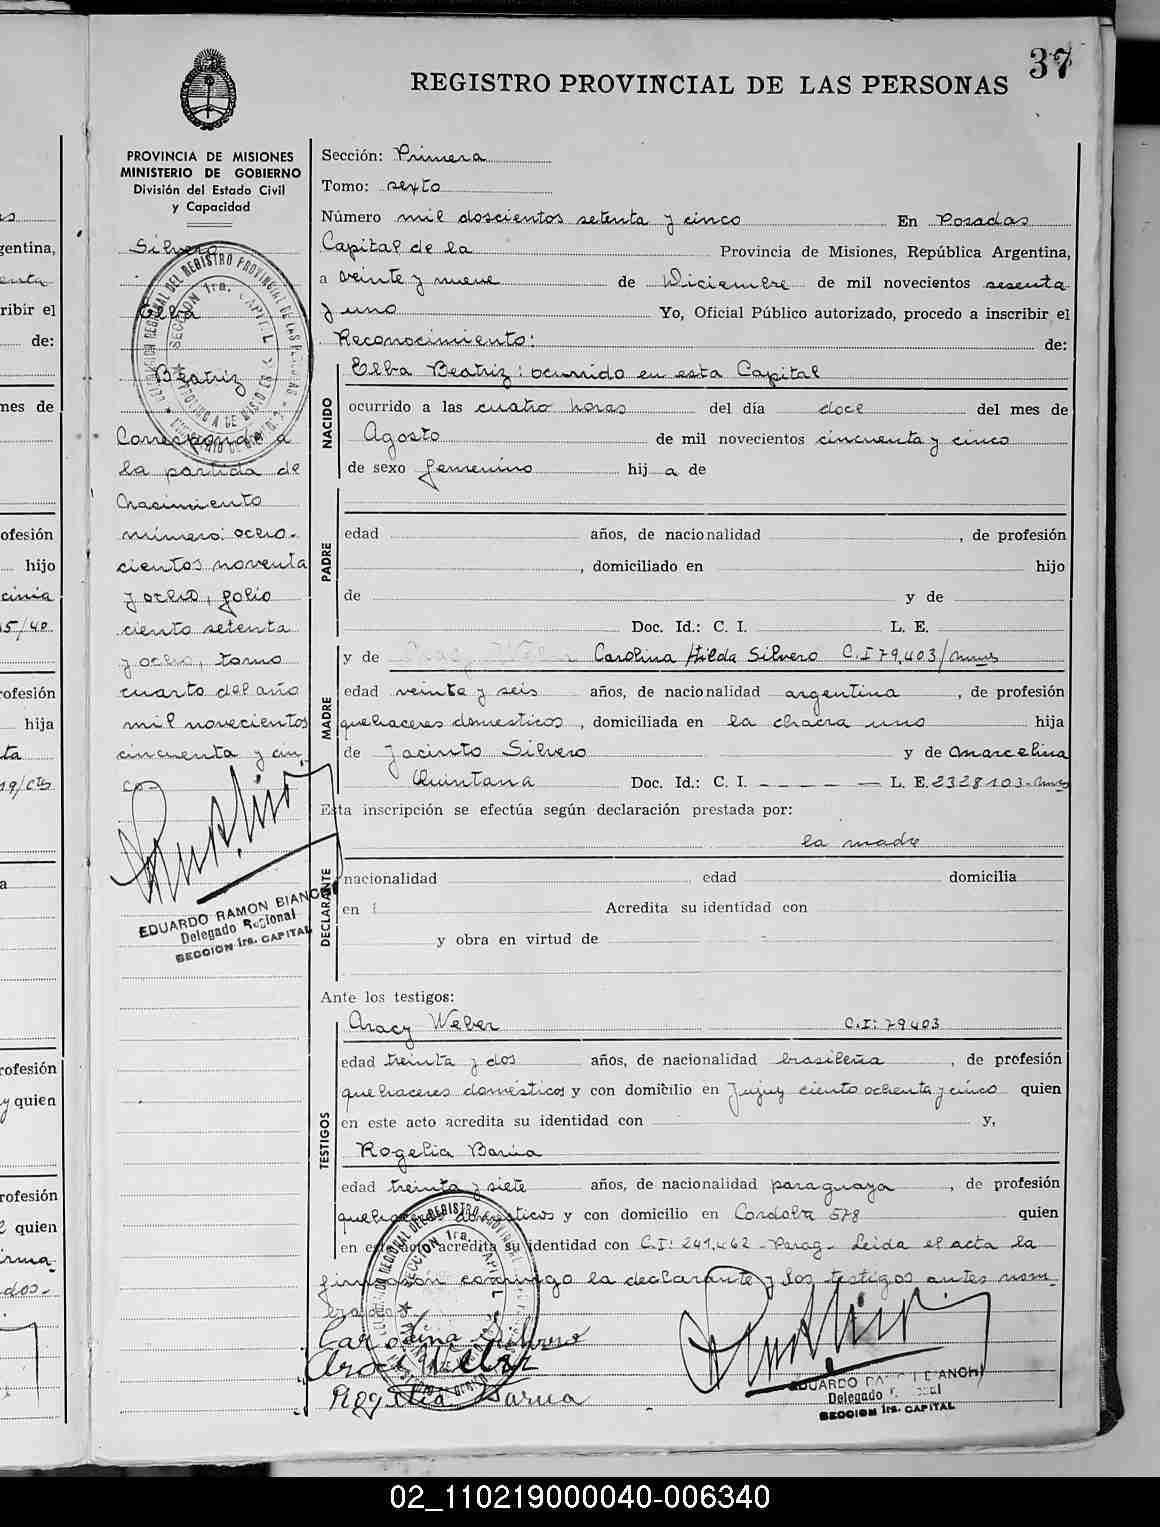 37
REGISTRO PROVINCIAL DE LAS PERSONAS
PROVINCIA DE MISIONES
MINISTERIO DE GOBIERNO
División del Estado Civil
y Capacidad
Silvero
Elba
Beatriz
Corresponde a
la partida de
Nacimiento
número: ocho-
cientos noventa
y ocho, folio
ciento setenta
y ocho, tomo
cuarto del año
mil novecientos
cincuenta y cin-
co-
EDUARDO RAMON BIANCHI
Delegado Regional
SECCION 1ra. CAPITAL
Sección: Primera
Tomo: sexto
Número mil doscientos setenta y cinco En Posadas
Capital de la Provincia de Misiones, República Argentina,
a veinte y nueve de Diciembre de mil novecientos sesenta
y uno Yo, Oficial Público autorizado, procedo a inscribir el
Reconocimiento: de:
NACIDO
Elba Beatriz: ocurrido en esta Capital
ocurrido a las cuatro horas del día doce del mes de
Agosto de mil novecientos cincuenta y cinco
de sexo femenino hij a de
PADRE
edad años, de nacionalidad , de profesión
, domiciliado en hijo
de y de
Doc. Id.: C. I. L. E.
MADRE
y de Carolina Hilda Silvero C.I 79.403/mnes
edad veinte y seis años, de nacionalidad argentina , de profesión
quehaceres domesticos , domiciliada en la chacra uno hija
de Jacinto Silvero y de Marcelina
Quintana Doc. Id.: C. I. - - - - - L. E. 2328103-mnes
Esta inscripción se efectúa según declaración prestada por:
la madre
DECLARANTE
nacionalidad edad domicilia
en Acredita su identidad con
y obra en virtud de
Ante los testigos:
TESTIGOS
Aracy Weber C.I: 79403
edad treinta y dos años, de nacionalidad brasileña , de profesión
quehaceres domésticos y con domicilio en Jujuy ciento ochenta y cinco quien
en este acto acredita su identidad con y,
Rogelia Barúa
edad treinta y siete años, de nacionalidad paraguaya , de profesión
quehaceres domésticos y con domicilio en Cordoba 578 quien
en este acto acredita su identidad con C.I: 241.462 - Parag- Leida el acta la
firmaron conmigo la declarante y los testigos antes nom-
brados.
Carolina Silvero
Aracy Weber
Rogelia Barua
EDUARDO RAMON BIANCHI
Delegado Regional
SECCION 1ra. CAPITAL
02_110219000040-006340